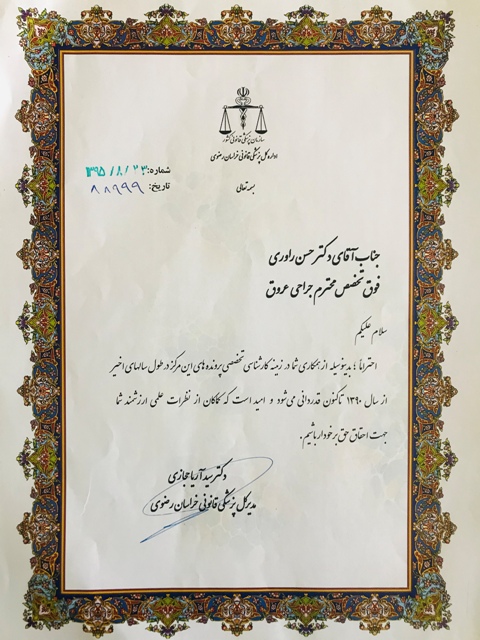 سازمان پزشکی قانونی کشور
اداره کل پزشکی قانونی خراسان رضوی
بسمه تعالی
شماره: ۱۳۹۵/۸/۲۳
تاریخ: ۸۸۹۹۹
جناب آقای دکتر حسن راوری
فوق تخصص محترم جراحی عروق
سلام علیکم
احتراماً ؛ بدینوسیله از همکاری شما در زمینه کارشناسی تخصصی پرونده های این مرکز در طول سالهای اخیر
از سال ۱۳۹۰ تاکنون قدردانی می شود و امید است که کماکان از نظرات علمی ارزشمند شما
جهت احقاق حق برخوردار باشیم .
دکتر سید آریا حجازی
مدیرکل پزشکی قانونی خراسان رضوی